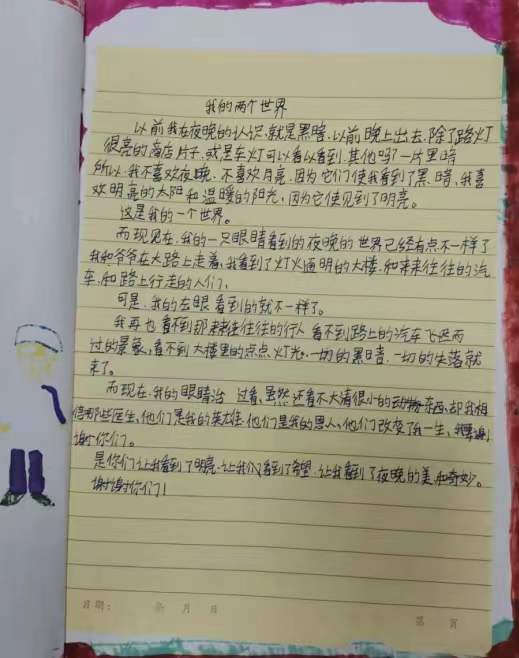 我的两个世界
以前我在夜晚的认识,就是黑暗.以前晚上出去,除了路灯
很亮的商店片子,或是车灯可以看以看到.其他吗?一片黑暗
所以.我不喜欢夜晚.不喜欢月亮.因为它们使我看到了黑暗,我喜
欢明亮的太阳和温暖的阳光,因为它使见到了明亮。
这是我的一个世界。
而现见在.我的一只眼睛看到的夜晚的世界已经有点不一样了
我和爷爷在大路上走着,我看到了灯火通明的大楼.和来来往往的汽
车.和路上行走的人们,
可是.我的去眼看到的就不一样了。
我再也看不到那来来往往的行人 看不到路上的汽车飞迟而
过的景象,看不到大楼里的点点灯光.一切的黑暗.一切的失落就
来了。
而现在.我的眼睛治 过看,虽然还看不大清很小的东西,却我相
信那些医生,他们是我的英雄.他们是我的恩人,他们改变了我一生,我谢
谢你们。
是你们让我看到了明亮.让我们看到了希望.让我看到了夜晚的美和奇妙。
谢谢你们!
日期: 年 月 日 第 页